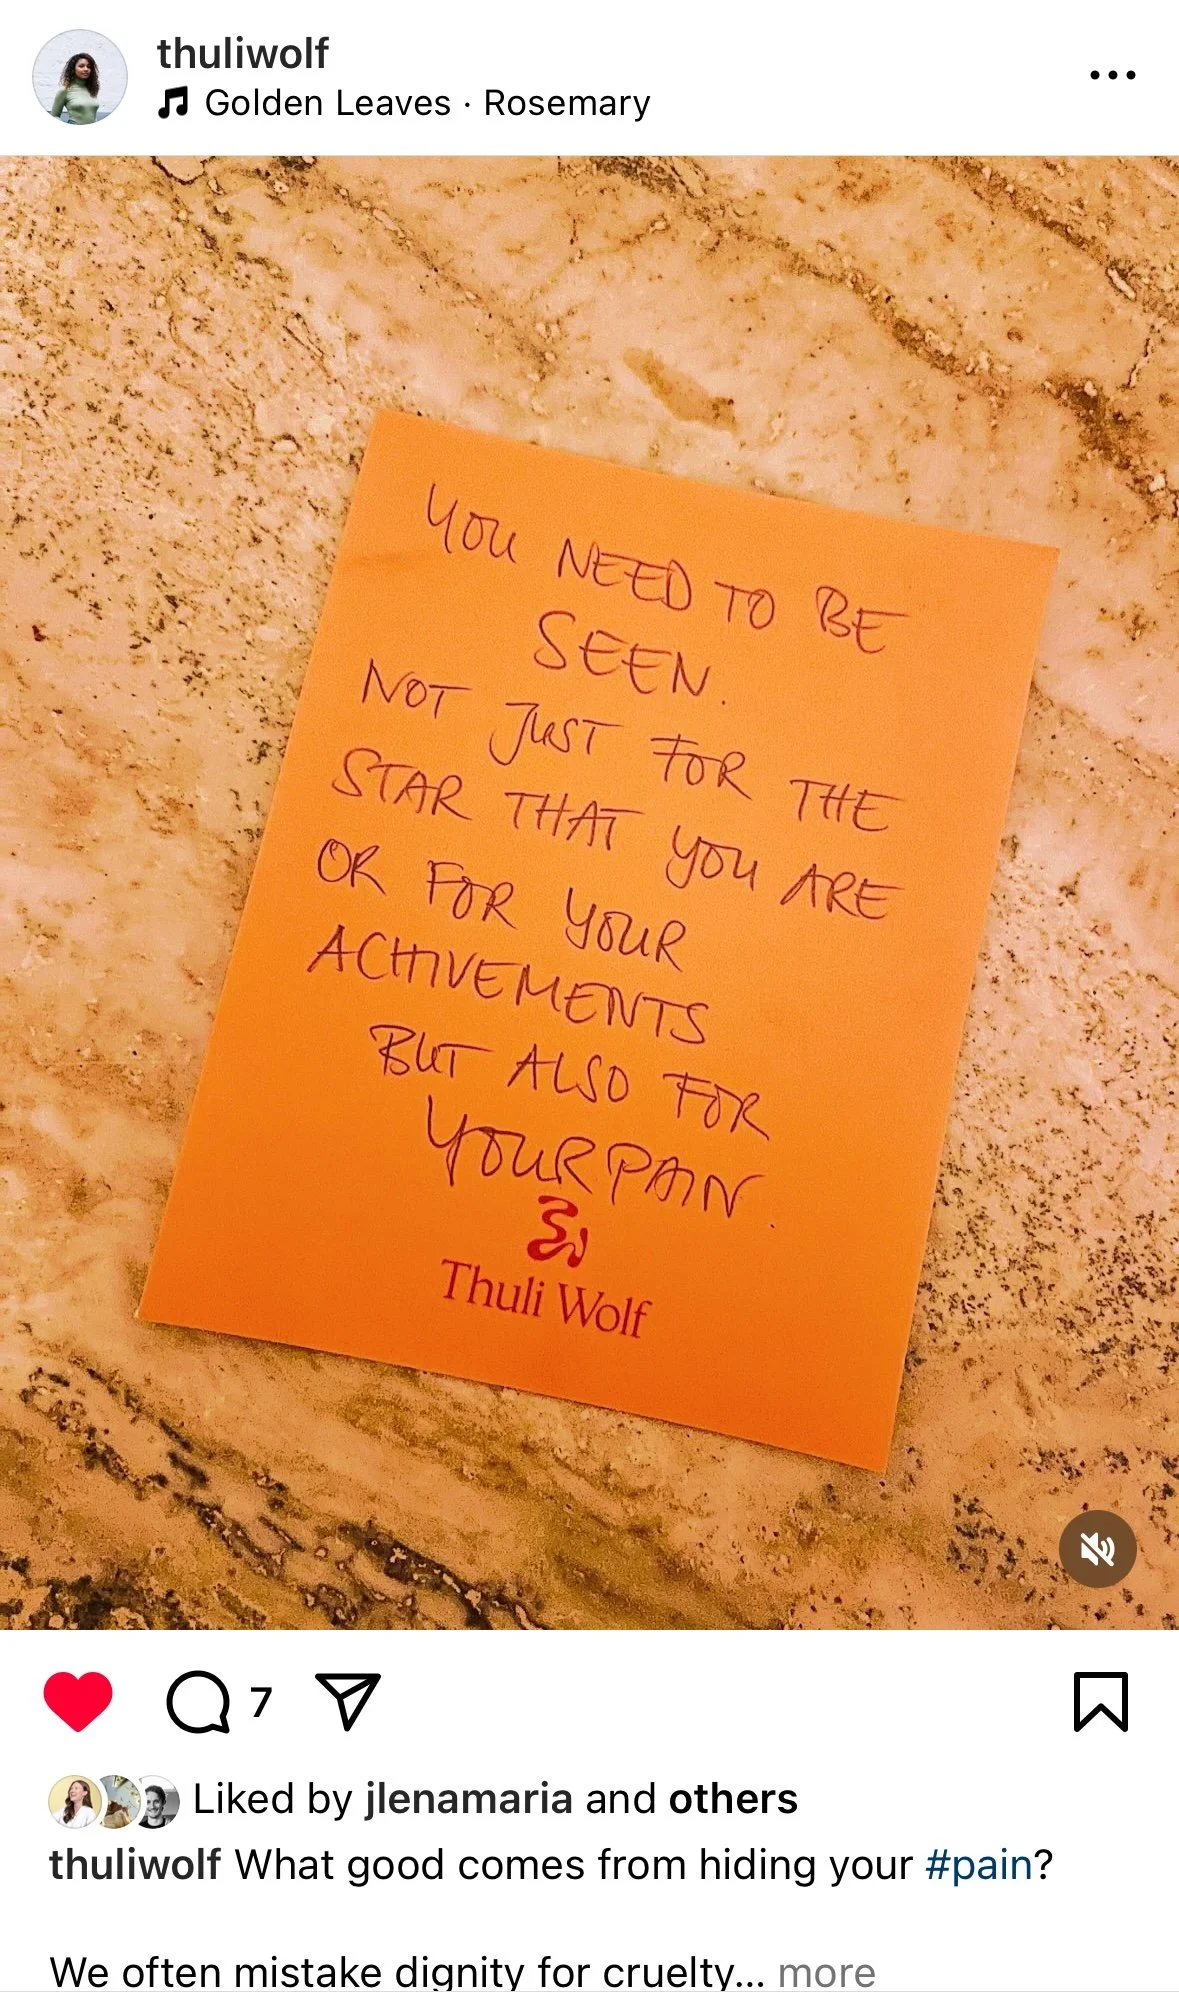 thuliwolf
Golden Leaves · Rosemary
YOU NEED TO BE
SEEN.
NOT JUST FOR THE
STAR THAT YOU ARE
OR FOR YOUR
ACHIVEMENTS
BUT ALSO FOR
YOUR PAIN.
Thuli Wolf
7
Liked by jlenamaria and others
thuliwolf What good comes from hiding your #pain?
We often mistake dignity for cruelty... more